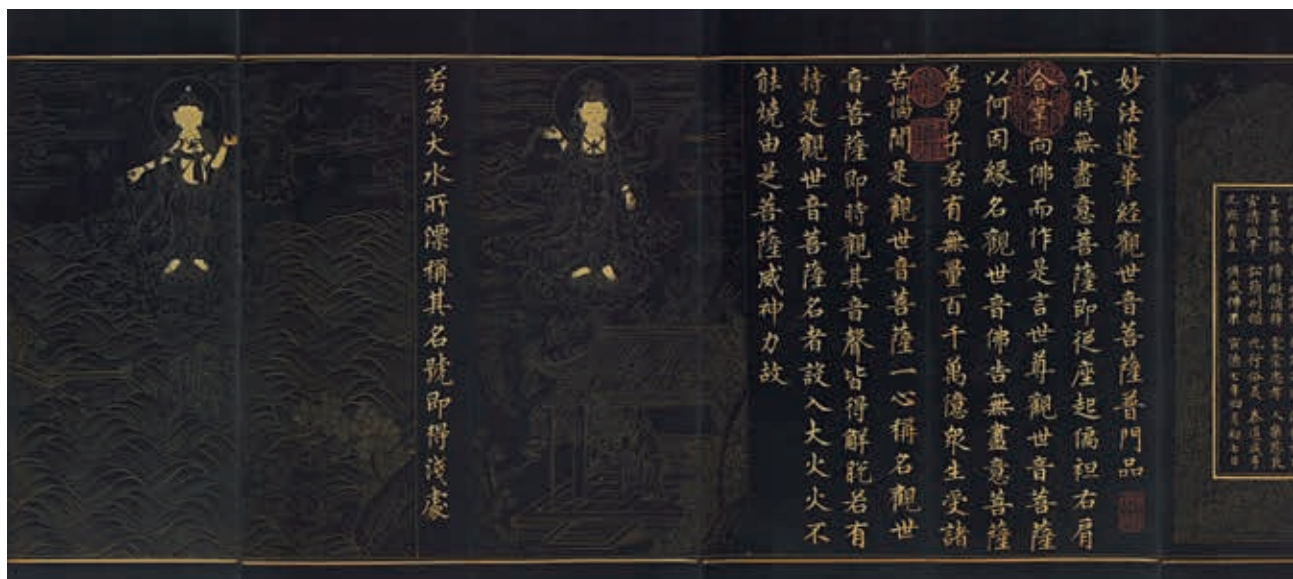 宣德七年四月初七日
妙法蓮華經觀世音菩薩普門品
尒時無盡意菩薩即從座起偏袒右肩
合掌向佛而作是言世尊觀世音菩薩
以何因緣名觀世音佛告無盡意菩薩
善男子若有無量百千萬億衆生受諸
苦惱聞是觀世音菩薩一心稱名觀世
音菩薩即時觀其音聲皆得解脫若有
持是觀世音菩薩名者設入大火火不
能燒由是菩薩威神力故
若爲大水所漂稱其名號即得淺處